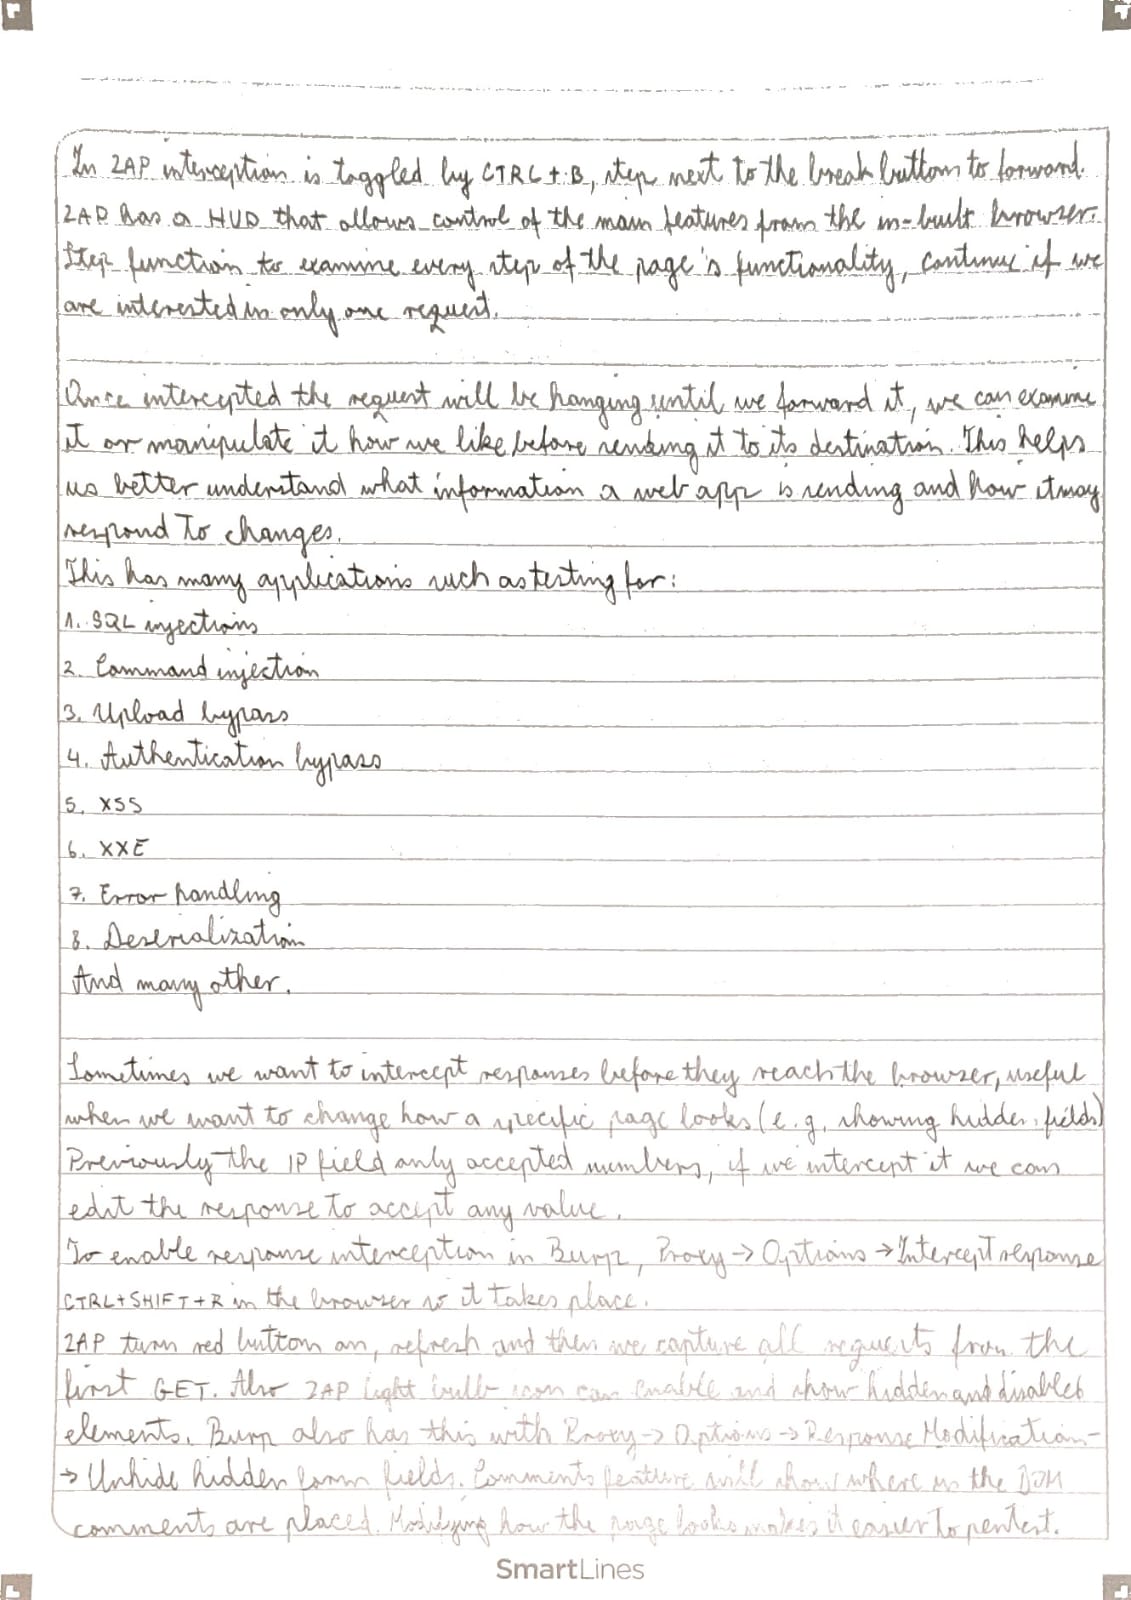 In ZAP interception is toggled by CTRL+B, step next to the break button to forward.
ZAP has a HUD that allows control of the main features from the in-built browser.
Step function to examine every step of the page's functionality, continue if we
are interested in only one request.
Once intercepted the request will be hanging until we forward it, we can examine
it or manipulate it how we like before sending it to its destination. This helps
us better understand what information a web app is sending and how it may
respond to changes.
This has many applications such as testing for:
1. SQL injections
2. Command injection
3. Upload bypass
4. Authentication bypass
5. XSS
6. XXE
7. Error handling
8. Deserialization
And many other.
Sometimes we want to intercept responses before they reach the browser, useful
when we want to change how a specific page looks (e.g. showing hidden fields)
Previously the IP field only accepted numbers, if we intercept it we can
edit the response to accept any value.
To enable response interception in Burp, Proxy → Options → Intercept response
CTRL+SHIFT+R in the browser so it takes place.
ZAP turn red button on, refresh and then we capture all requests from the
first GET. Also ZAP light bulb icon can enable and show hidden and disabled
elements. Burp also has this with Proxy → Options → Response Modification-
→ Unhide hidden form fields. Comments feature will show where in the DOM
comments are placed. Modifying how the page looks makes it easier to pentest.
SmartLines